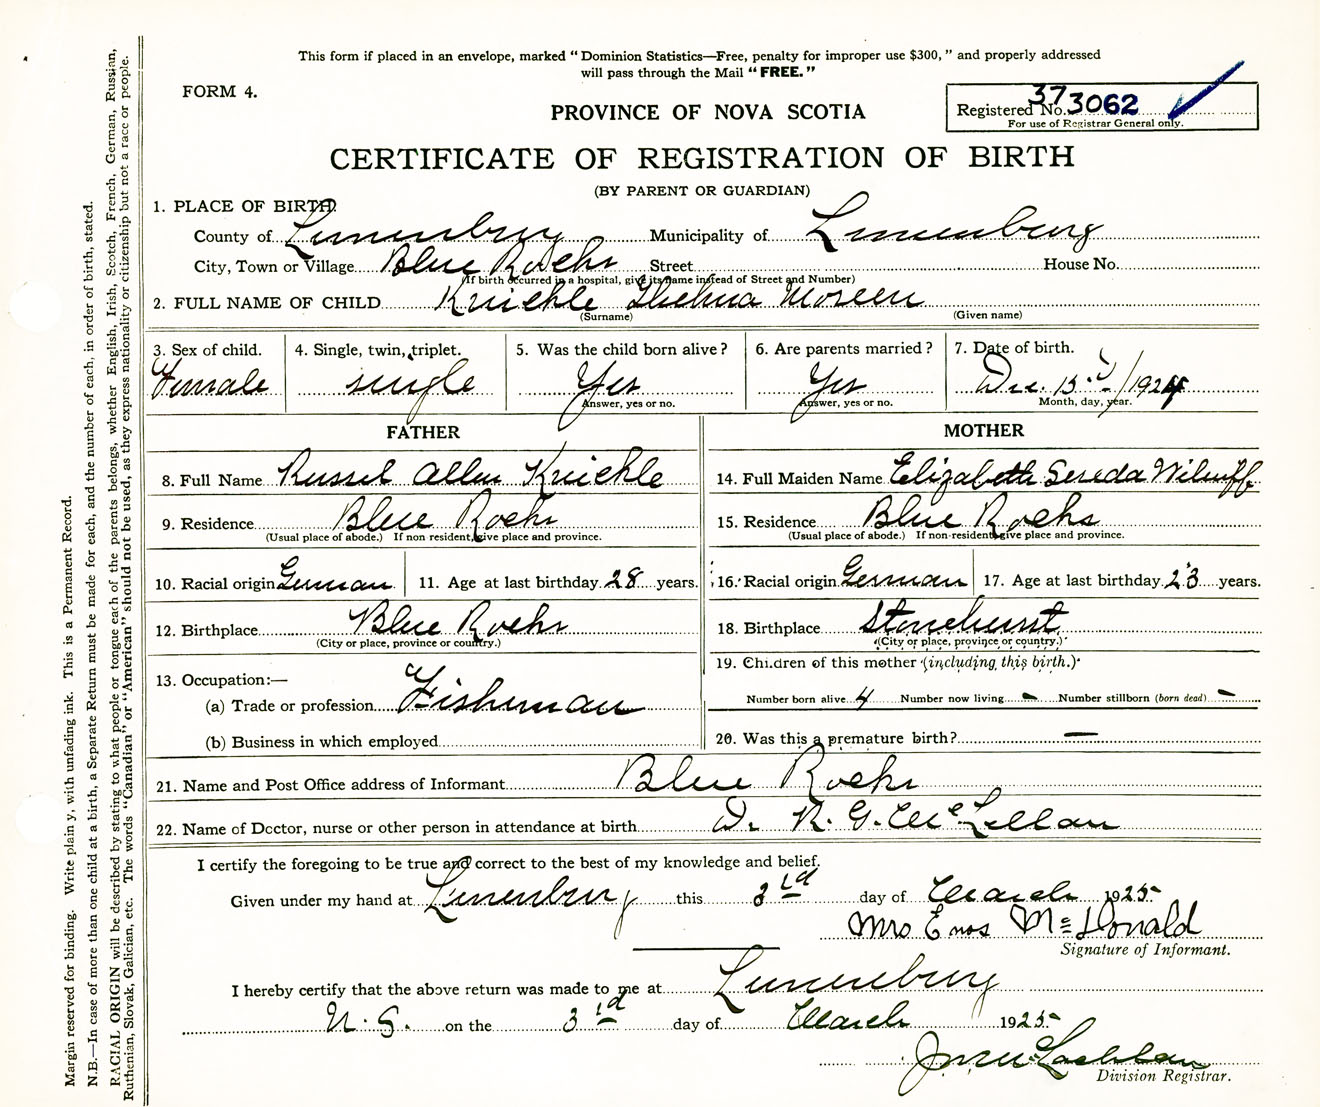 This form if placed in an envelope, marked "Dominion Statistics—Free, penalty for improper use $300," and properly addressed
will pass through the Mail "FREE."
FORM 4.
Registered No. 373062
For use of Registrar General only.
PROVINCE OF NOVA SCOTIA
CERTIFICATE OF REGISTRATION OF BIRTH
(BY PARENT OR GUARDIAN)
1. PLACE OF BIRTH
County of Lunenburg Municipality of Lunenburg
City, Town or Village Blue Rocks Street House No.
(If birth occurred in a hospital, give its name instead of Street and Number)
2. FULL NAME OF CHILD Knickle Thelma Moreen
(Surname) (Given name)
3. Sex of child. 4. Single, twin, triplet. 5. Was the child born alive? 6. Are parents married? 7. Date of birth.
Female single Yes Yes Dec. 15 /1924
Answer, yes or no. Answer, yes or no. Month, day, year.
FATHER MOTHER
8. Full Name Russel Allen Knickle 14. Full Maiden Name Elizabeth Sereda
9. Residence Blue Rocks 15. Residence Blue Rocks
(Usual place of abode.) If non resident, give place and province. (Usual place of abode.) If non-resident give place and province.
10. Racial origin German 11. Age at last birthday 28 years. 16. Racial origin German 17. Age at last birthday 23 years.
12. Birthplace Blue Rocks 18. Birthplace Stonehurst
(City or place, province or country.) (City or place, province or country.)
13. Occupation:— 19. Children of this mother (including this birth.)
(a) Trade or profession Fisherman Number born alive 4 Number now living - Number stillborn (born dead) -
(b) Business in which employed 20. Was this a premature birth? —
21. Name and Post Office address of Informant Blue Rocks
22. Name of Doctor, nurse or other person in attendance at birth Dr R. G. McLellan
I certify the foregoing to be true and correct to the best of my knowledge and belief.
Given under my hand at Lunenburg this 3rd day of March 1925
Mrs Enos McDonald
Signature of Informant.
I hereby certify that the above return was made to me at Lunenburg
N.S. on the 3rd day of March 1925
Lachlan
Division Registrar.
Margin reserved for binding. Write plainly, with unfading ink. This is a Permanent Record.
N.B.—In case of more than one child at a birth, a Separate Return must be made for each, and the number of each, in order of birth, stated.
RACIAL ORIGIN will be described by stating to what people or tongue each of the parents belongs, whether English, Irish, Scotch, French, German, Russian,
Ruthenian, Slovak, Galician, etc. The words "Canadian" or "American" should not be used, as they express nationality or citizenship but not a race or people.